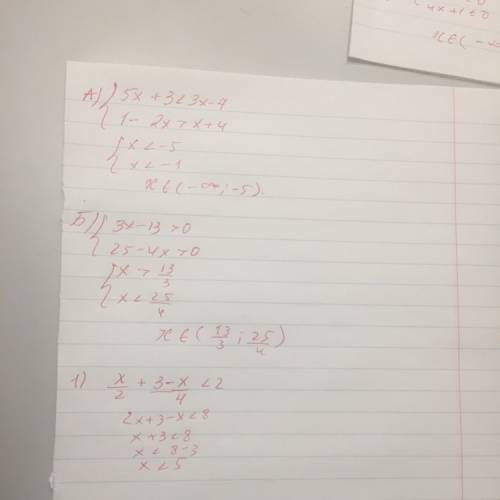 4x+1≤0
x∈(-∞
А) { 5x+3<3x-7
1-2x>x+4
{ x<-5
x<-1
x∈(-∞;-5).
Б) { 3x-13>0
25-4x>0
{ x>13/3
x<25/4
x∈(13/3;25/4)
1) x/2 + 3-x/4 <2
2x+3-x<8
x+3<8
x<8-3
x<5